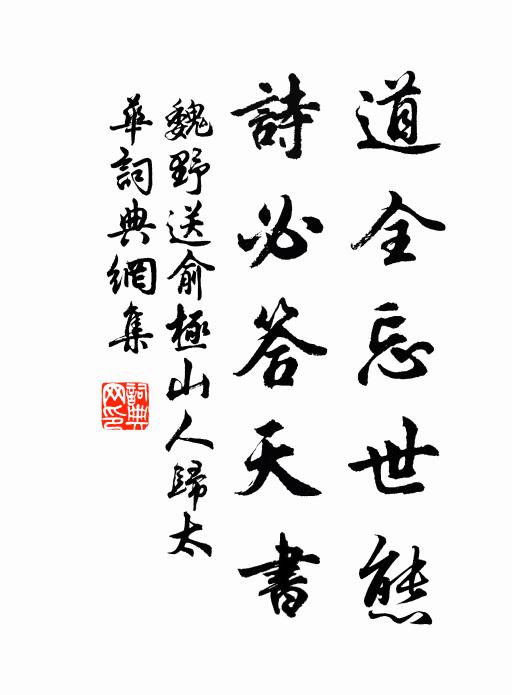 道全忘世態
詩必答天書
魏野送俞極山人歸太
華詞典網集
詞典網印